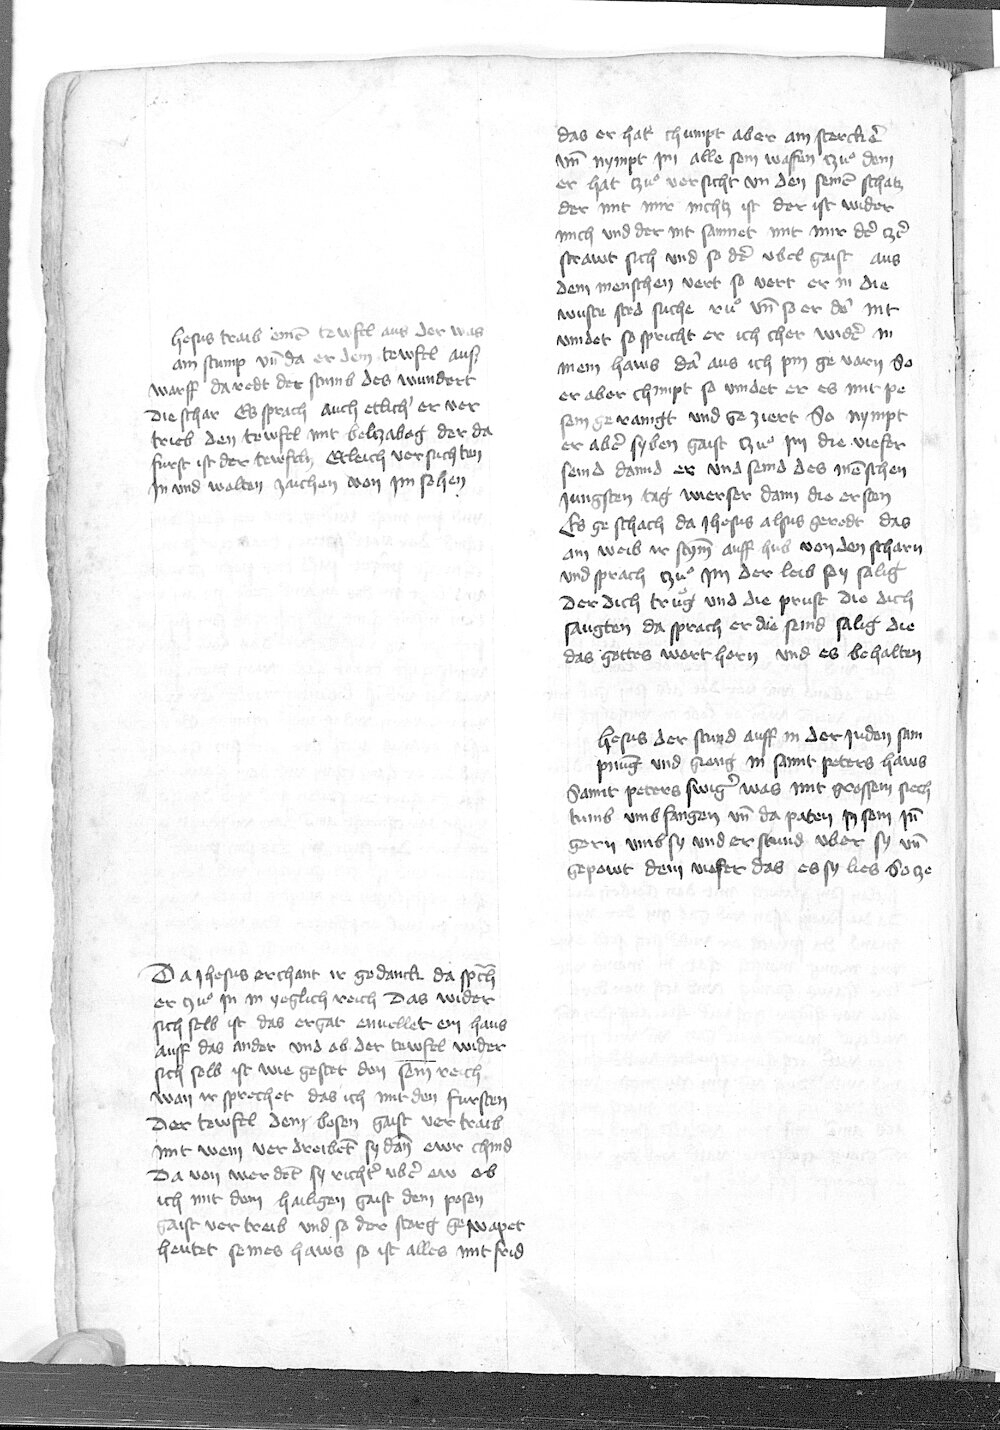 hesus traib einē tewfel aus der was
ain stump vn̄ da er dem tewfel aus
warff da redt der stumb des wundert
Die schar Es sprach auch etlich er ver
trieb den tewfel mit beltzabog der da
furst ist der tewfeln Etleich versuchten
In vnd wolten zaichen von im sehen
Da Jhesus erchant ir gedanck da sprach
er tzuͦ in in yeglich reich Das wider
sich selb ist das ergat enuellet ein haus
auff das ander vnd ob der tewfel wider
sich selb ist wie gestet den sein reich
wan ir sprechet das ich mit den fursten
Der tewfel dem bosen gaist vertraib
mit wem ver dreibet sy dan̄ ewr chind
Da von werdet sy richtͬ vbͬ ew ob
ich mit dem hailigen gaist dem posen
gaist ver treib vnd so der starg gewapet
heutet seines haws so ist alles mit frid
das er hat chumpt aber ain sterckeͬ
vn̄ nympt im alle sein waffen tzuͦ dem
er hat tzuͦ versicht vn den seinē schatz
der mit mir nichtz ist der ist wider
mich vnd der nit samnet mit mir deͬ tzeͬ
strawt sich vnd so deͬ vbel gaist aus
dem menschen vert so vert er in die
wuste sted suche ruͦ vn̄ so er deͬ nit
vindet so spricht er ich cher wideͬ in
mein haws daͬ aus ich pin ge varn So
er aber chimpt so vindet er es mit pe
sem geraingt vnd ge ziert So nympt
er abeͬ syben gaist tzuͦ im die viefer
seind dannd er vnd seind des mēschen
Jungsten tag wierser dann die ersten
Es ge schach da Jhesus alsus geredt das
ain weib ir stym̄ auff hub von den scharn
vnd sprach tzuͦ im der leib sey salig
Der dich trug vnd die prust die dich
saugten da sprach er die seind salig die
das gottes wort horn vnd es behalten
hesus der stund auff in der Juden sam
pnug vnd gieng in sannt peters haws
Sannt peters swigͬ was mit grossem siech
tumb vmbfangen vn̄ da paten Jn sein Jū
gern vmb sy vnd er stund vber sy vn̄
gepowt dem viefer das es sy lies So ze